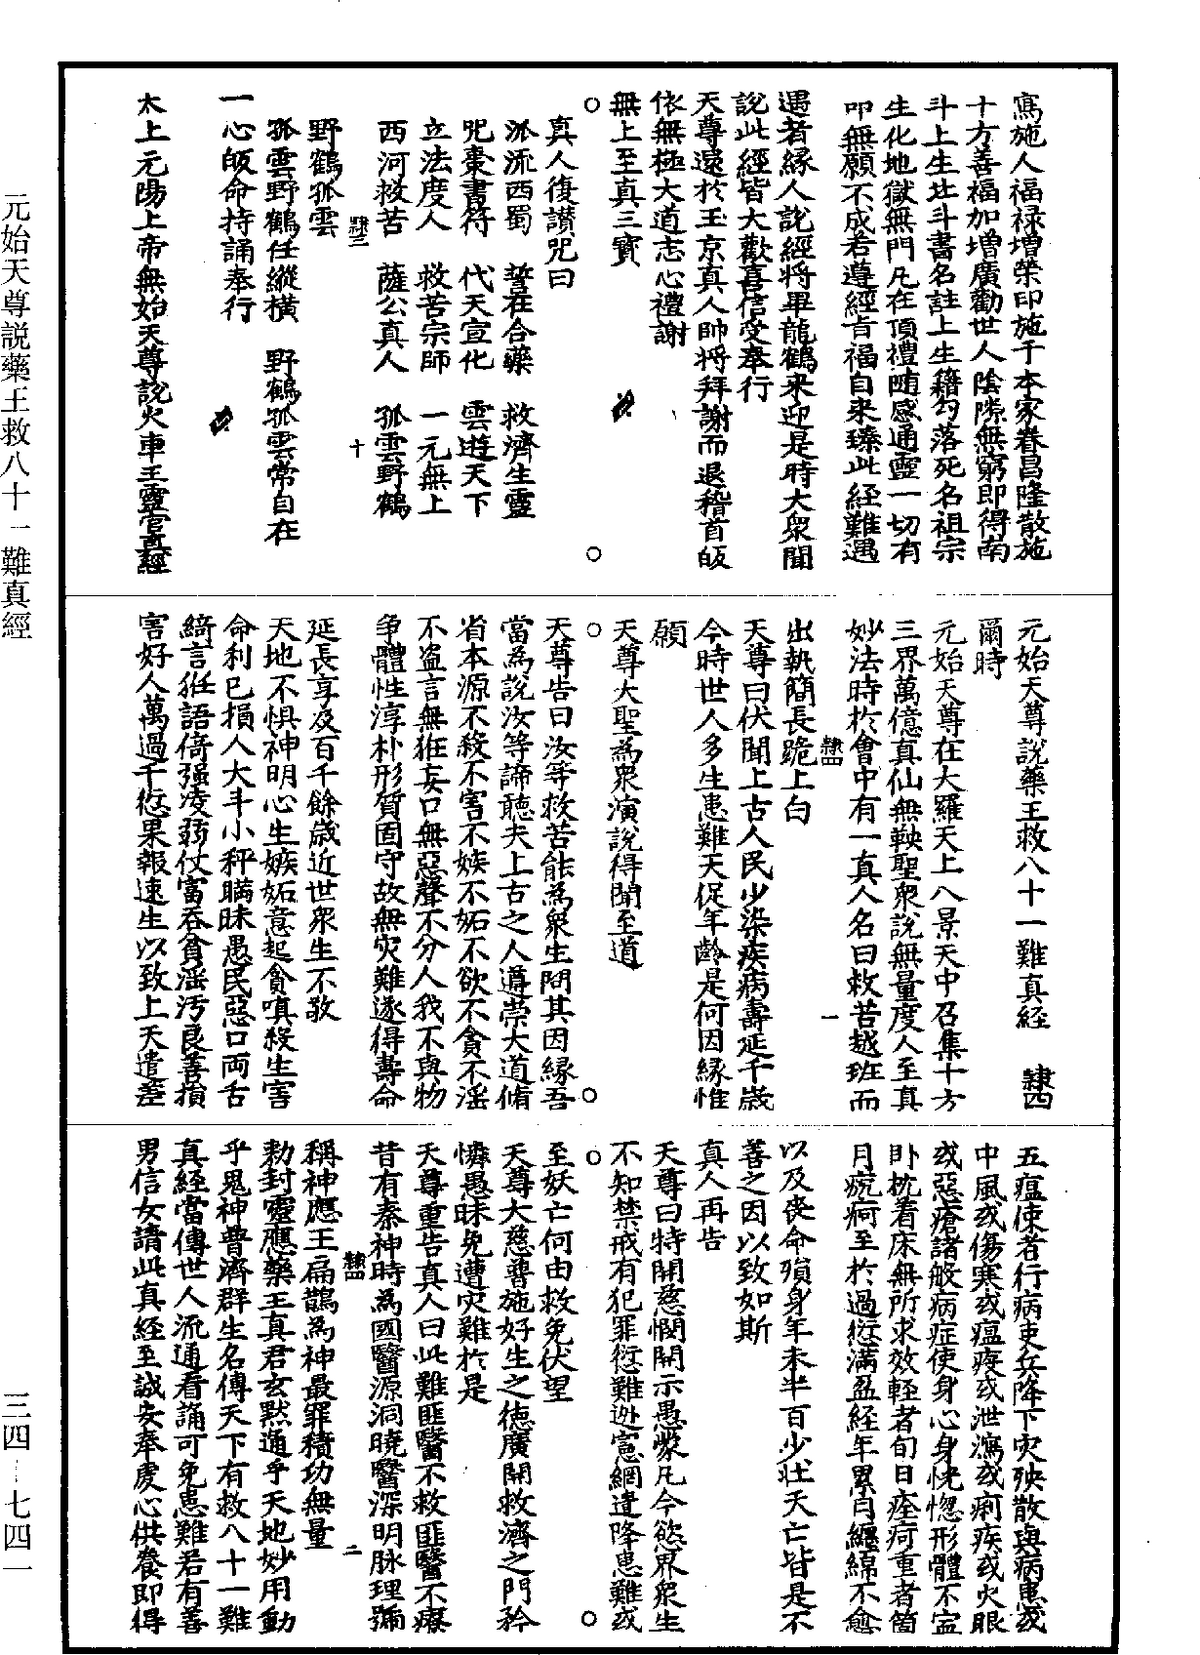 寫施人福祿增榮印施千本家眷昌隆散施
十方善福加增廣勸世人陰隲無窮即得南
斗上生北斗書名註上生籍勾落死名祖宗
生化地獄無門凡在頂禮隨感通靈一切有
叩無願不成若遵經旨福自来臻此經難遇
遇者緣人說經將畢龍鶴来迎是時大衆聞
說此經皆大歡喜信受奉行
天尊還於玉京真人帥將拜謝而退稽首皈
依無極大道志心禮謝
無上至真三寶
真人復讃咒曰
派流西蜀 誓在合藥 救濟生靈
咒棗書符 代天宣化 雲遊天下
立法度人 救苦宗師 一元無上
西河救苦 薩公真人 孤雲野鶴
隸三 十
野鶴孤雲
孤雲野鶴任縱橫 野鶴孤雲常自在
一心皈命持誦奉行
太上元陽上帝無始天尊說火車王靈官真經
元始天尊說藥王救八十一難真經 隸四
爾時
元始天尊在大羅天上八景天中召集十方
三界萬億真仙無鞅聖衆說無量度人至真
妙法時於會中有一真人名曰救苦越班而
隸四 一
出執簡長跪上白
天尊曰伏聞上古人民少染疾病壽延千歲
今時世人多生患難夭促年齡是何因緣惟
願
天尊大聖為衆演說得聞至道
天尊告曰汝等救苦能為衆生問其因緣吾
當為說汝等諦聽夫上古之人遵崇大道脩
省本源不殺不害不嫉不妬不欲不貪不淫
不盗言無狂妄口無惡聲不分人我不與物
争體性淳朴形質固守故無灾難遂得壽命
延長享及百千餘歲近世衆生不敬
天地不惧神明心生嫉妬意起貪嗔殺生害
命利已損人大斗小秤瞞昧愚民惡口兩舌
綺言狂語倚强凌弱仗富吞貧淫汚良善損
害好人萬過千愆果報速生以致上天遣差
五瘟使者行病吏兵降下灾殃散與病患或
中風或傷寒或瘟疫或泄瀉或痢疾或火眼
或惡瘡諸般病症使身心身恍惚形體不寍
卧枕着床無所求效輕者旬日痊疴重者箇
月疣疴至於過愆滿盈經年累月纏綿不愈
以及喪命殞身年未半百少壮夭亡皆是不
善之因以致如斯
真人再告
天尊曰特開慈憫開示愚蒙凡今慾界衆生
不知禁戒有犯罪愆難逊憲網遣降患難或
至妖亡何由救免伏望
天尊大慈普施好生之德廣開救濟之門矜
憐愚昧免遭灾難於是
天尊重告真人曰此難匪醫不救匪醫不療
昔有秦神時為國醫源洞曉醫深明脉理號
隸四 二
稱神應王扁鵲為神最罪積功無量
勑封靈應藥王真君玄黙通乎天地妙用動
乎鬼神普濟群生名傳天下有救八十一難
真經當傳世人流通看誦可免患難若有善
男信女請此真經至誠安奉虔心供養即得
元始天尊説藥王救八十一難真經
三四—七四一